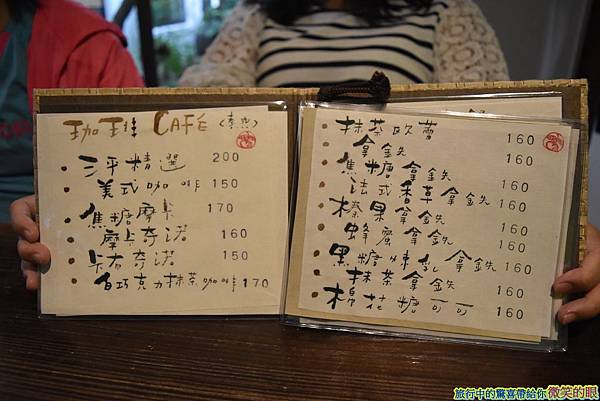 珈琲 CAFÉ
三平精選 200
美式咖啡 150
焦糖摩卡 170
摩卡奇諾 160
卡布奇諾 150
白巧克力抹茶咖啡 170
抹茶歐蕾 160
拿鉄 160
焦糖拿鉄 160
法式香草拿鉄 160
榛果拿鉄 160
蜂蜜拿鉄 160
黑糖煉乳拿鉄 160
抹茶拿鉄 160
棉花糖可可 160
旅行中的驚喜帶給你微笑的眼